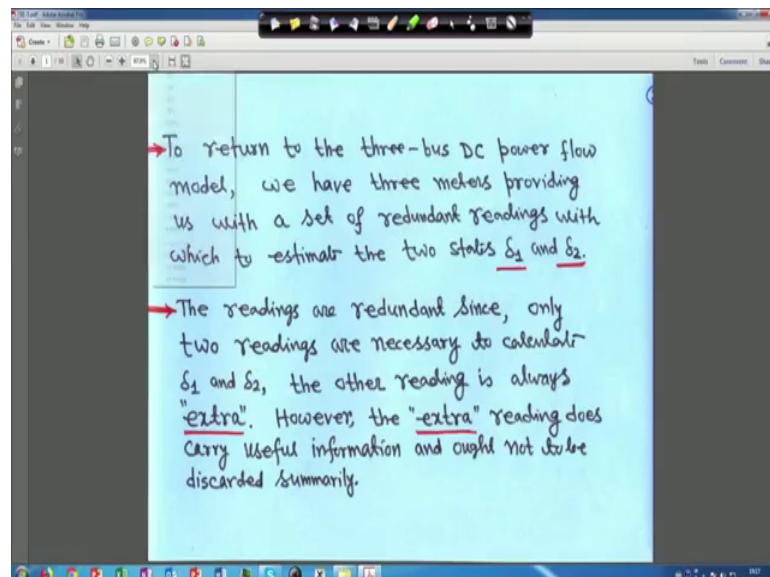 File Edit View Window Help
Create
Tools Comment
To return to the three-bus DC power flow
model, we have three meters providing
us with a set of redundant readings with
which to estimate the two states δ1 and δ2.
The readings are redundant since, only
two readings are necessary to calculate
δ1 and δ2, the other reading is always
"extra". However, the "extra" reading does
carry useful information and ought not to be
discarded summarily.